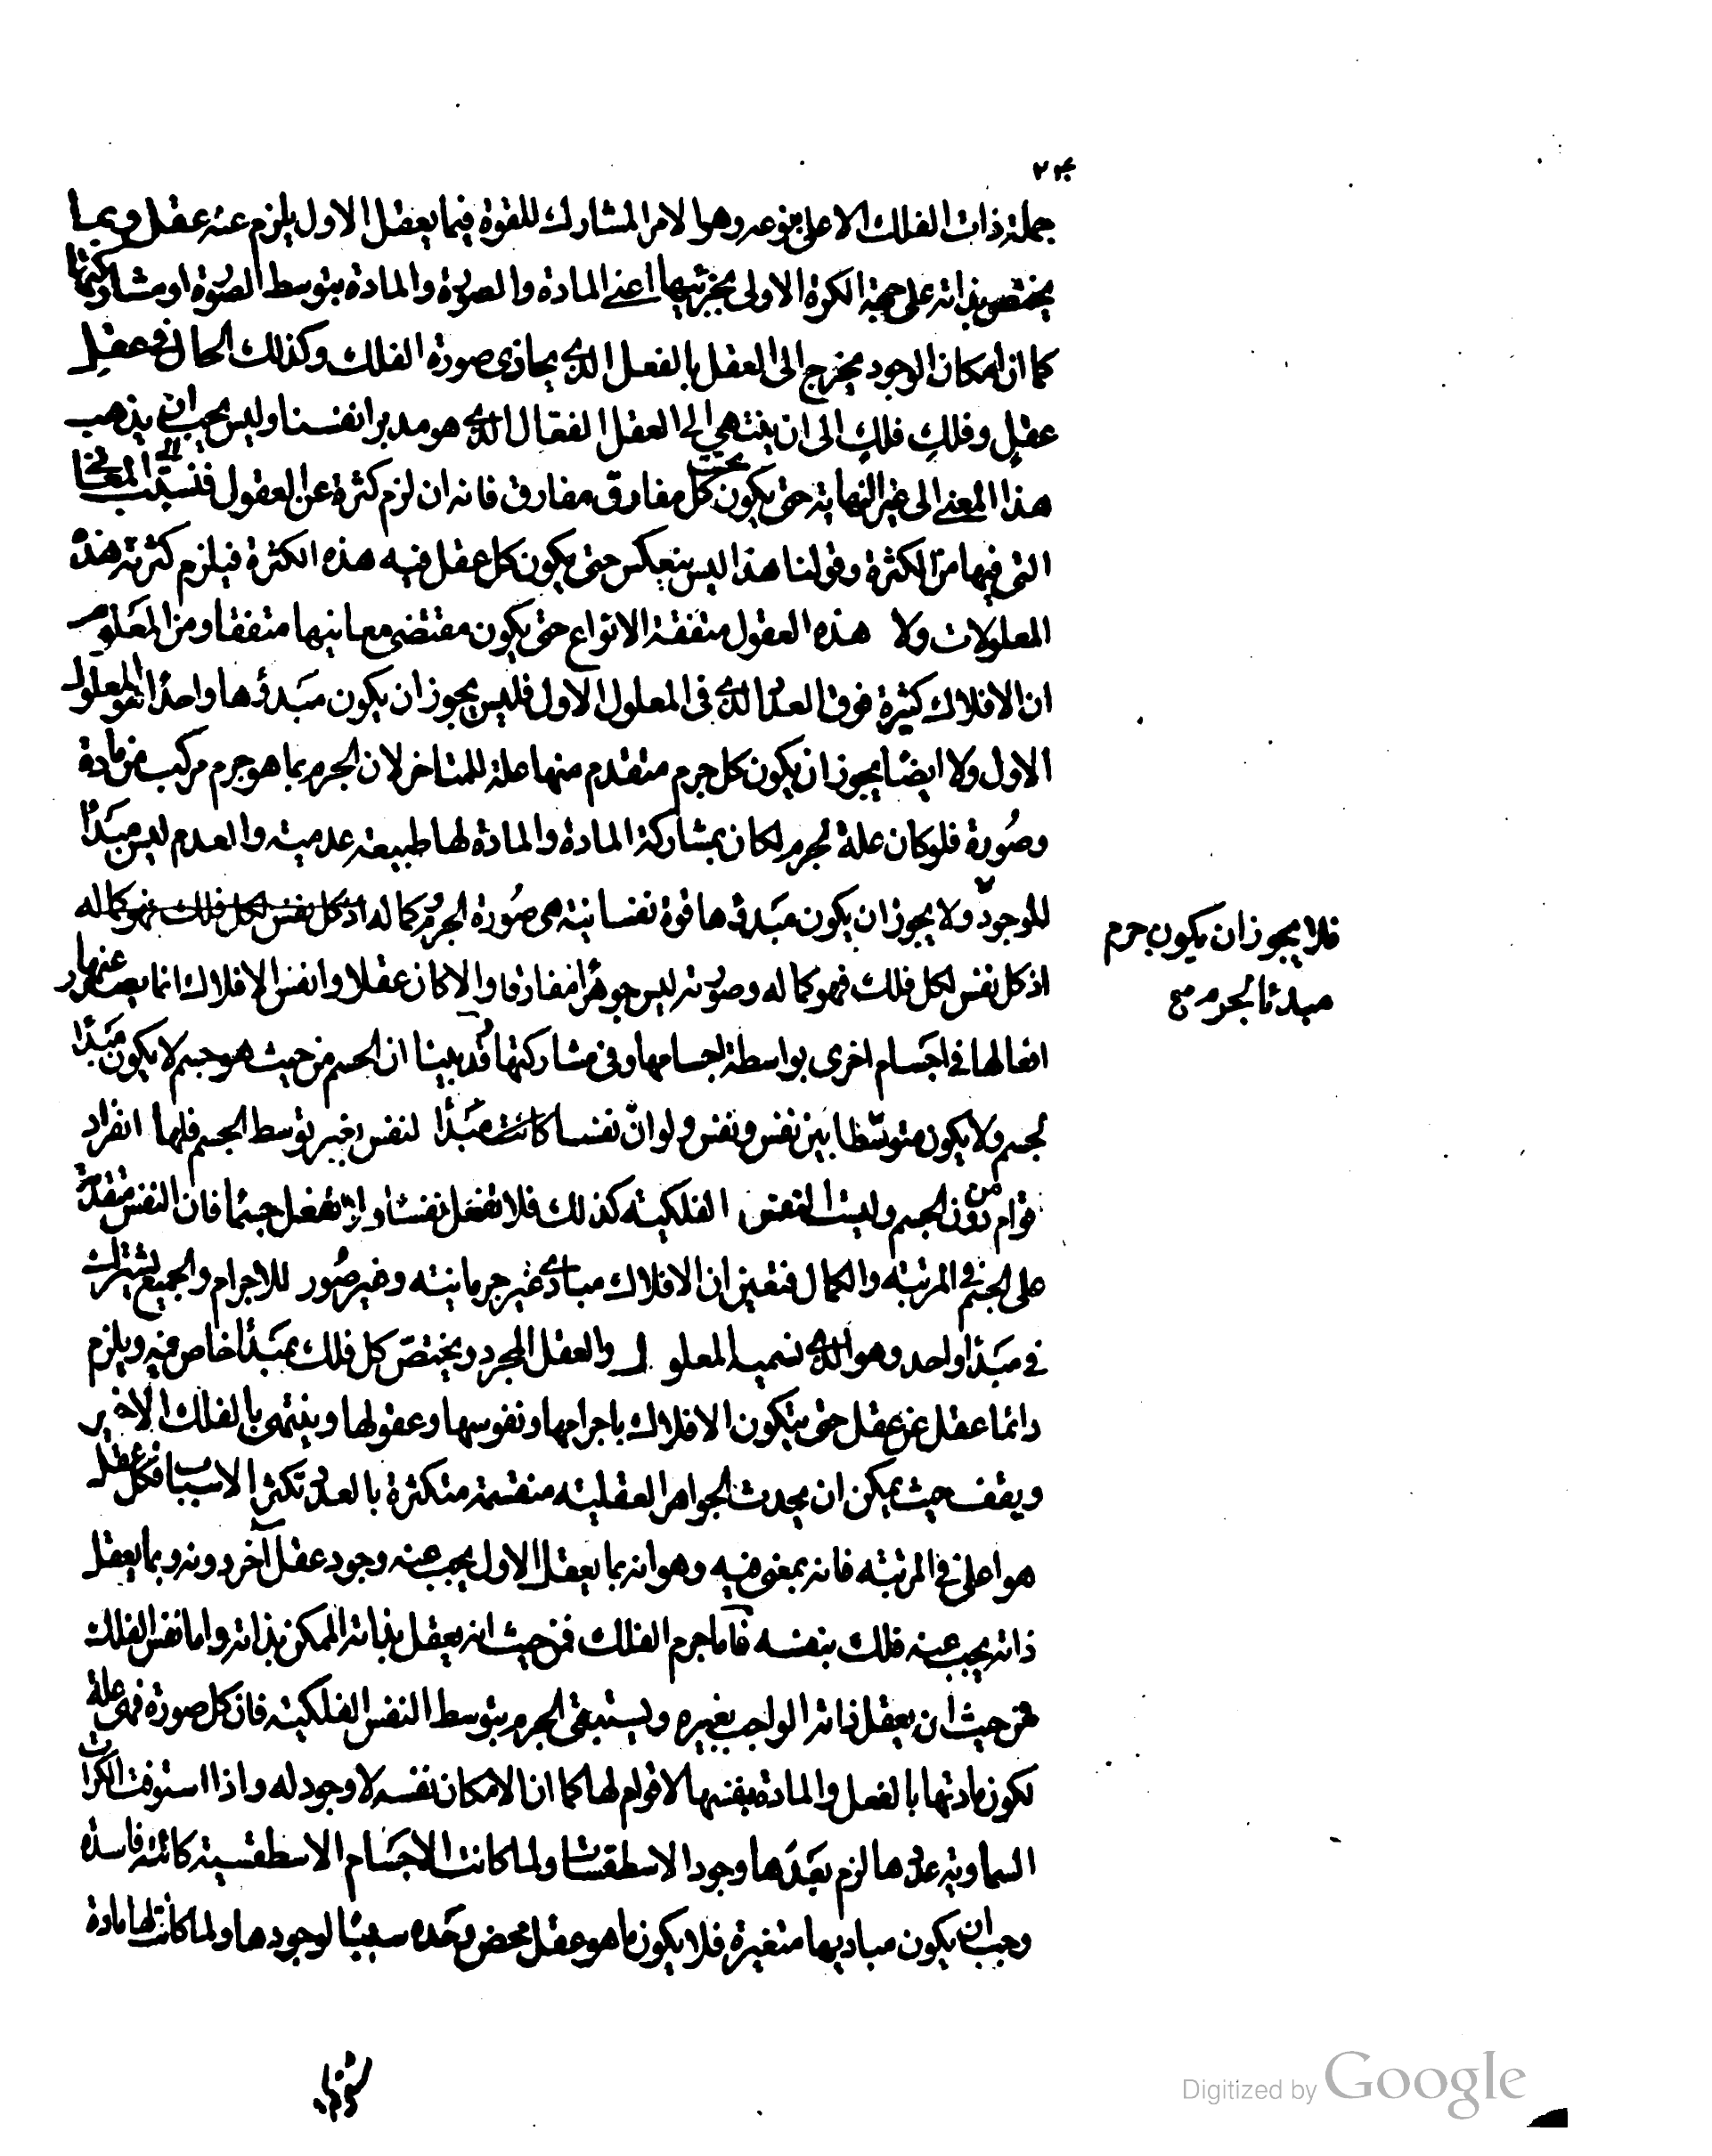 جملة ذات الفلك الاعلى بنوعه وهو الامر المشارك للقوة فيما يعقل الاول يلزم عنه عقل وبما
يختص بذاته على جهة الكرة الاولى بجزئيها اعنى المادة والصورة والمادة بتوسط الصورة او مشاركتها
كما ان امكان الوجود يخرج الى العقل بالفعل الذى يحاذى صورة الفلك وكذلك الحال فى عقل
عقل وفلك فلك الى ان ينتهى الى العقل الفعال الذى هو مدبر انفسنا وليس يجب ان يذهب
هذا المعنى الى غير النهاية حتى يكون تحت كل مفارق مفارق فانه ان لزم كثرة عن العقول فنسبت الى المعانى
التى فيها من الكثرة وقولنا هذا ليس ينعكس حتى يكون كل عقل فيه هذه الكثرة فيلزم كثرته هذه
المعلولات ولا هذه العقول متفقة الانواع حتى يكون مقتضى معانيها متفقا ومن المعلوم
ان الافلاك كثيرة فوق العدد الذى فى المعلول الاول فليس يجوز ان يكون مبدؤها واحدا هو المعلول
الاول ولا ايضا يجوز ان يكون كل جرم متقدم منها علة للمتاخر لان الجرم بما هو جرم مركب من مادة
وصورة فلو كان علة لجرم لكان بمشاركة المادة والمادة لها طبيعة عدمية والعدم ليس مبدأ
للموجود ولا يجوز ان يكون مبدؤها قوة نفسانية هى صورة الجرم كماله اذ كل نفس لكل فلك فهو كماله
فلا يجوز ان يكون جرم
مبدئا لجرم صح
اذ كل نفس لكل فلك فهو كماله وصورته ليس جوهرا مفارقا والا كان عقلا وانفس الافلاك انما يصدر عنها
افعالها فى اجسام اخرى بواسطة اجسامها وفى مشاركتها وقد بينا ان الجسم من حيث هو جسم لا يكون مبدأ
لجسم ولا يكون متوسطا بين نفس ونفس ولو ان نفسا كانت مبدأ لنفس بغير توسط الجسم فلها انفراد
قوام من دون الجسم وليست النفس الفلكية كذلك فلا تفعل نفسا ولا تفعل جسما فان النفس متقدمة
على الجسم فى المرتبة والكمال فتعين ان الافلاك مبادئ غير جرمانية وغير صور للاجرام والجميع يشترك
فى مبدأ واحد وهو الذى نسميه المعلول والعقل المجرد ويختص كل فلك بمبدأ خاص فيه ويلزم
دائما عقل عن عقل حتى يتكون الافلاك باجرامها ونفوسها وعقولها وينتهى بالفلك الاخير
ويقف حيث يمكن ان يحدث الجواهر العقلية منقسمة متكثرة بالعدد تكثر الاسباب فكل عقل
هو اعلى فى المرتبة فانه بمعنى فيه وهو انه بما يعقل الاول يجب عنه وجود عقل آخر دونه وبما يعقل
ذاته يجب عنه فلك بنفسه فاما جرم الفلك فمن حيث انه يعقل بذاته الممكن بذاته واما نفس الفلك
فمن حيث ان يعقل ذاته الواجب بغيره ويستبقى الجرم بتوسط النفس الفلكية فان كل صورة فهى علة
لكون مادتها بالفعل والمادة بنفسها لا قوام لها كما ان الامكان نفسه لا وجود له واذا استوفت الكرات
السماوية عددها لزم بعدها وجود الاسطقسات ولما كانت الاجسام الاسطقسية كائنة فاسدة
وجب ان يكون مباديها متغيرة فلا يكون ما هو عقل محض وحده سببا لوجودها ولما كانت لها مادة
Digitized by Google